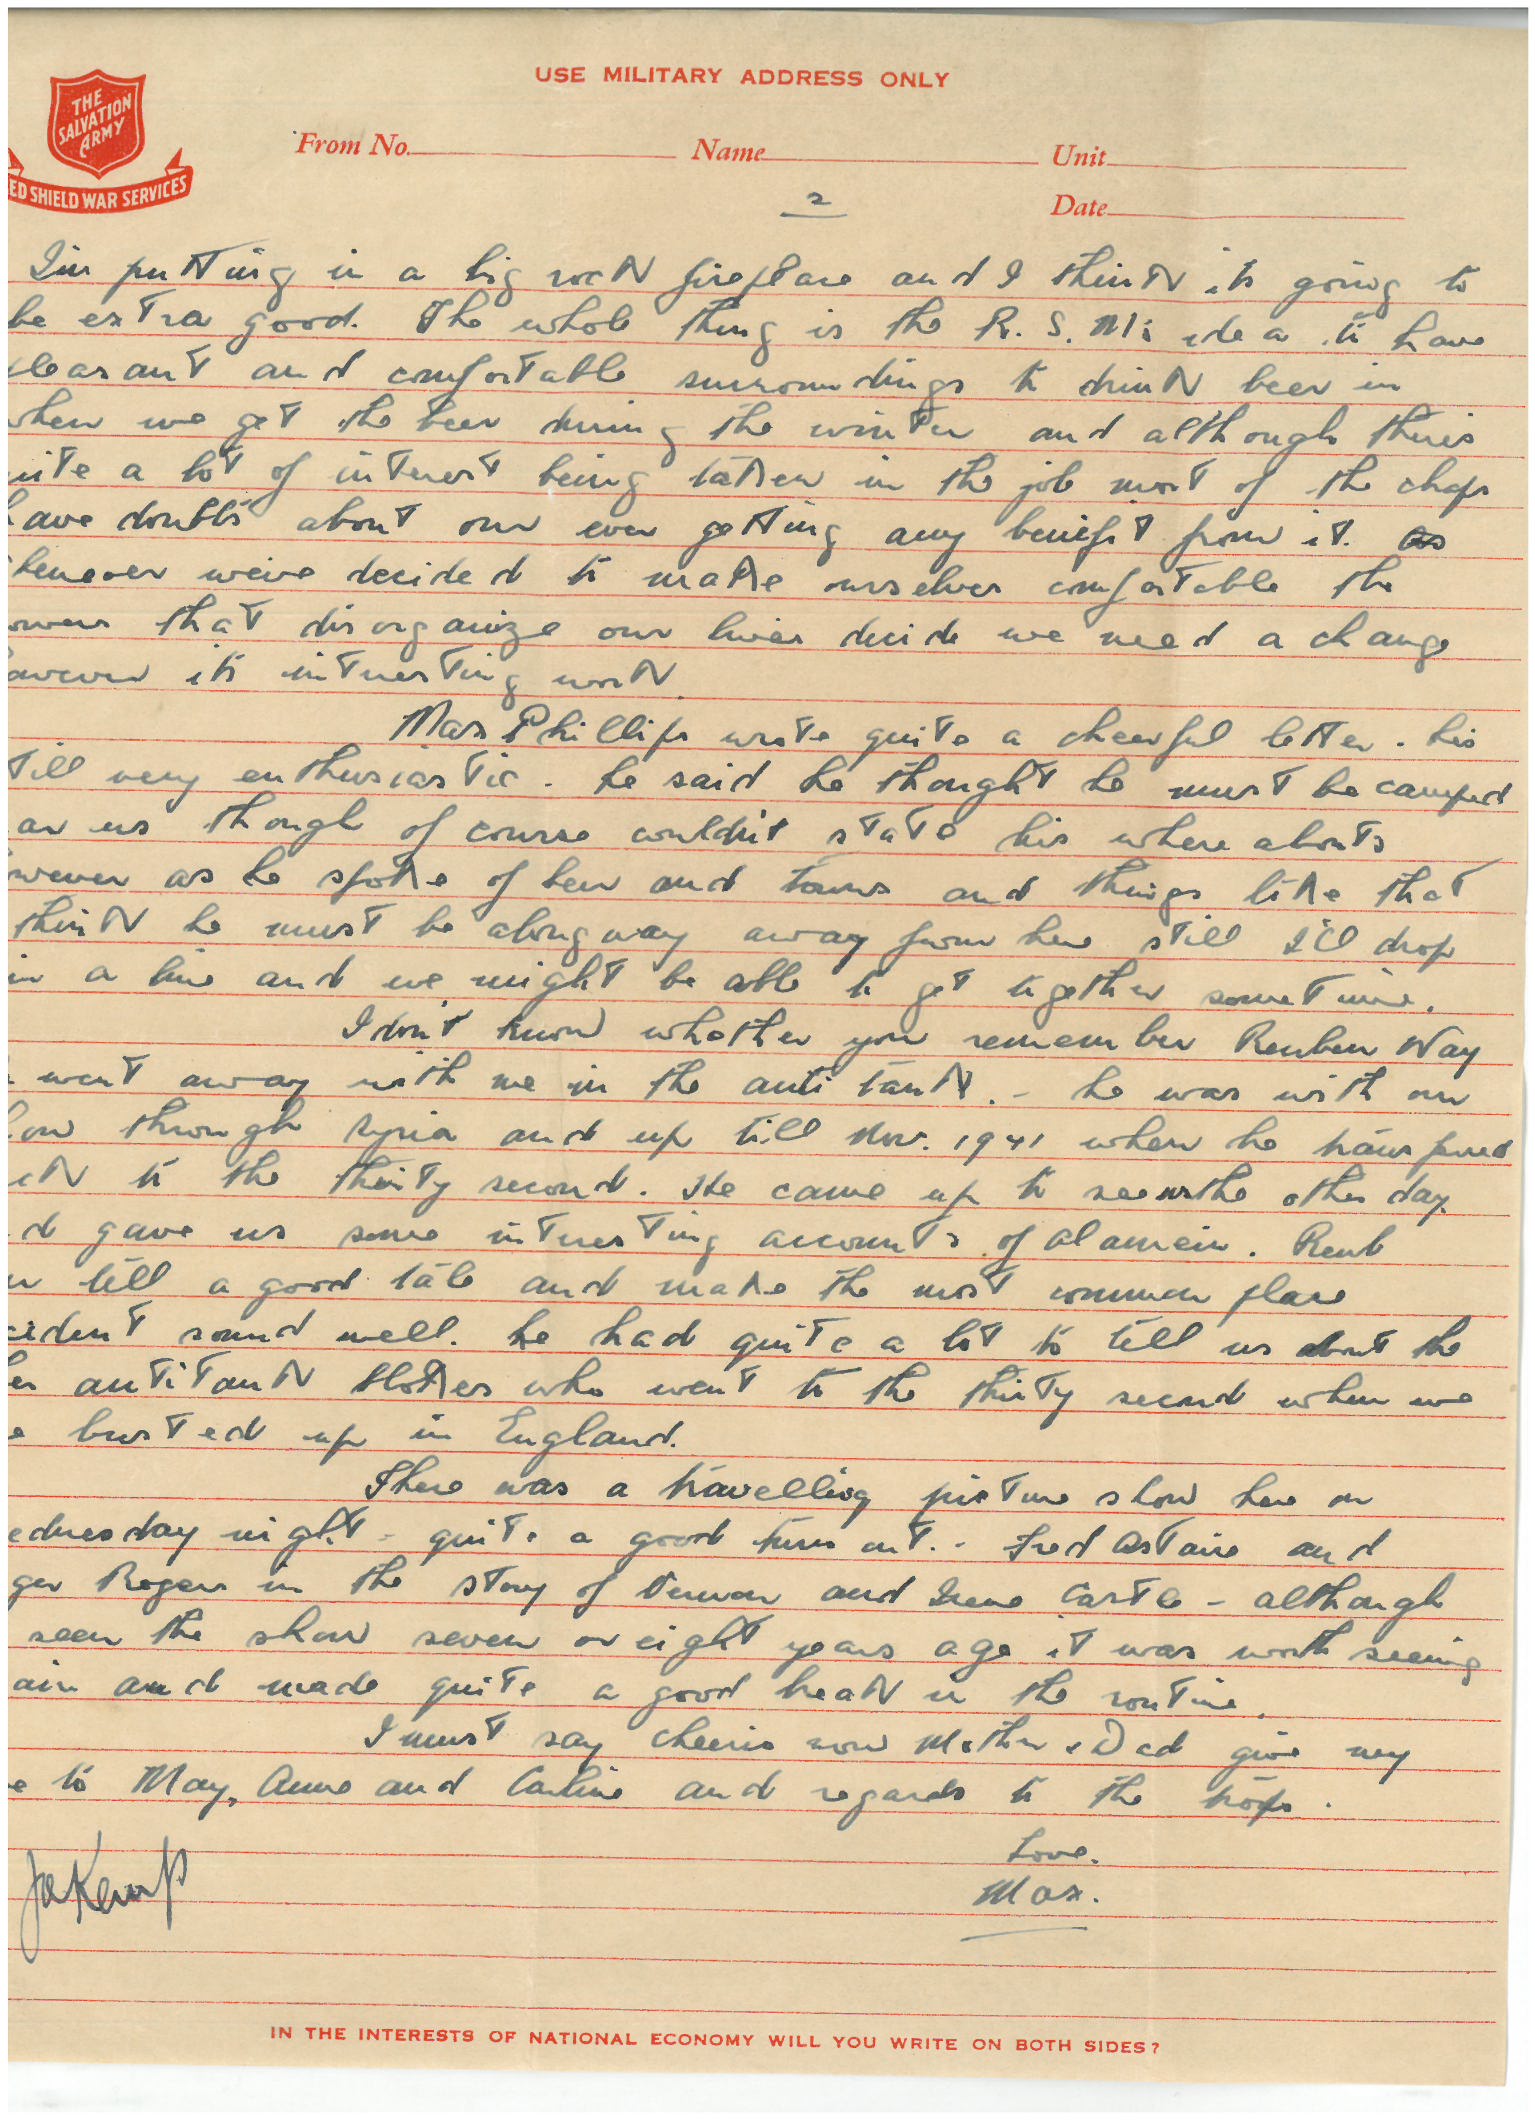 USE MILITARY ADDRESS ONLY
THE
SALVATION
ARMY
ED SHIELD WAR SERVICES
From No. Name Unit
2 Date
I'm putting in a big rock fireplace and I think its going to
be extra good. The whole thing is the R.S.M's idea to have
pleasant and comfortable surroundings to drink beer in
when we get the beer during the winter and although theres
uite a lot of interest being taken in the job most of the chaps
have doubts about our ever getting any benifit from it. as
henever we've decided to make ourselves comfortable the
owers that disorganize our lives decide we need a change
owever its interesting work.
Max Phillips wrote quite a cheerful letter. his
till very enthusiastic. he said he thought he must be camped
ar us though of course couldn't state his where abouts
wever as he spoke of beer and towns and things like that
think he must be along way away from here still I'll drop
im a line and we might be able to get together sometime.
I don't know whether you remember Reuben Way
went away with me in the anti tank. - he was with our
low through Syria and up till Nov. 1941 when he transfered
ck to the thirty second. He came up to see us the other day.
d gave us some interesting accounts of Alamein. Reub
n tell a good tale and make the most common place
cident sound well. he had quite a lot to tell us about the
her antitank blokes who went to the thirty second when we
e busted up in England.
There was a travelling picture show here on
ednesday night - quite a good turn out. - Fred Astaire and
ger Rogers in the story of Vernon and Irene Castle - although
seen the show seven or eight years ago it was worth seeing
ain and made quite a good break in the routine.
I must say cheerio now Mother & Dad give my
e to May, Anne and and regards to the troops.
Love.
Max.
JA Kemp
IN THE INTERESTS OF NATIONAL ECONOMY WILL YOU WRITE ON BOTH SIDES?